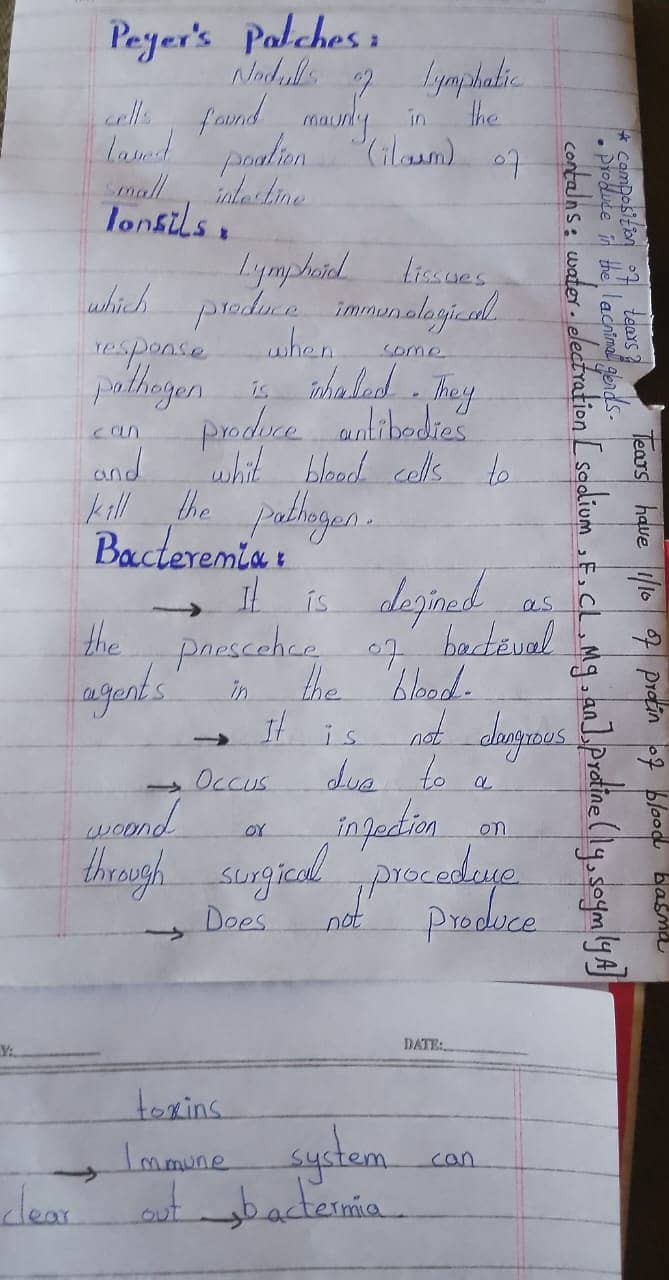 Peyer's Patches:
Noduls of lymphatic
cells found maunly in the
laued poation (ilaum) of
small intestine
Tonsils:
Lymphoid tissues
which produce immunological
response when some
pathogen is inhaled. They
can produce antibodies
and whit blood cells to
kill the pathogen.
Bacteremia:
→ It is defined as
the pnescehce of bactéual
agents in the blood.
→ It is not dangrous
→ Occus due to a
woond or infection on
through surgical procedcue
→ Does not produce
* composition of tears?
• produce in the lacnimal glends.
contains: water. electration [sodium, F, Cl, Mg, an], protine (ly, soym lg A]
Tears have 1/10 of protin of blood basma
Y:
DATE:
toxins
→ Immune system can
clear out → bactermia.